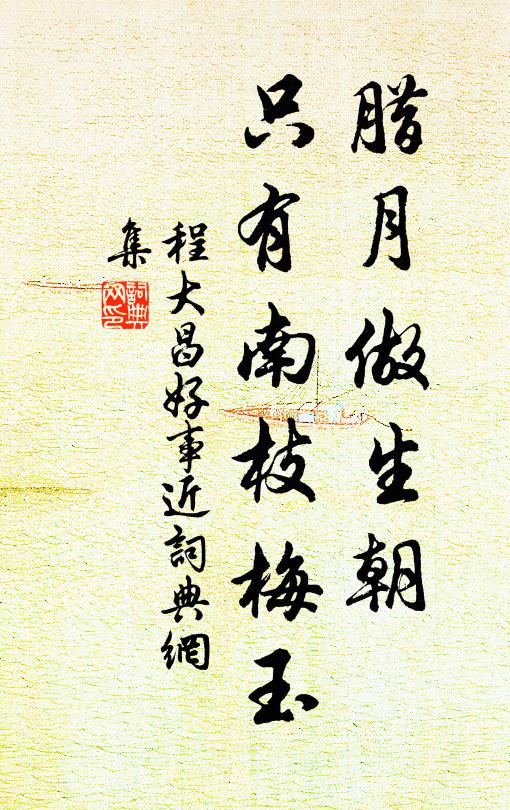 腊月做生朝
只有南枝梅玉
程大昌好事近詞典網
集
詞典網印